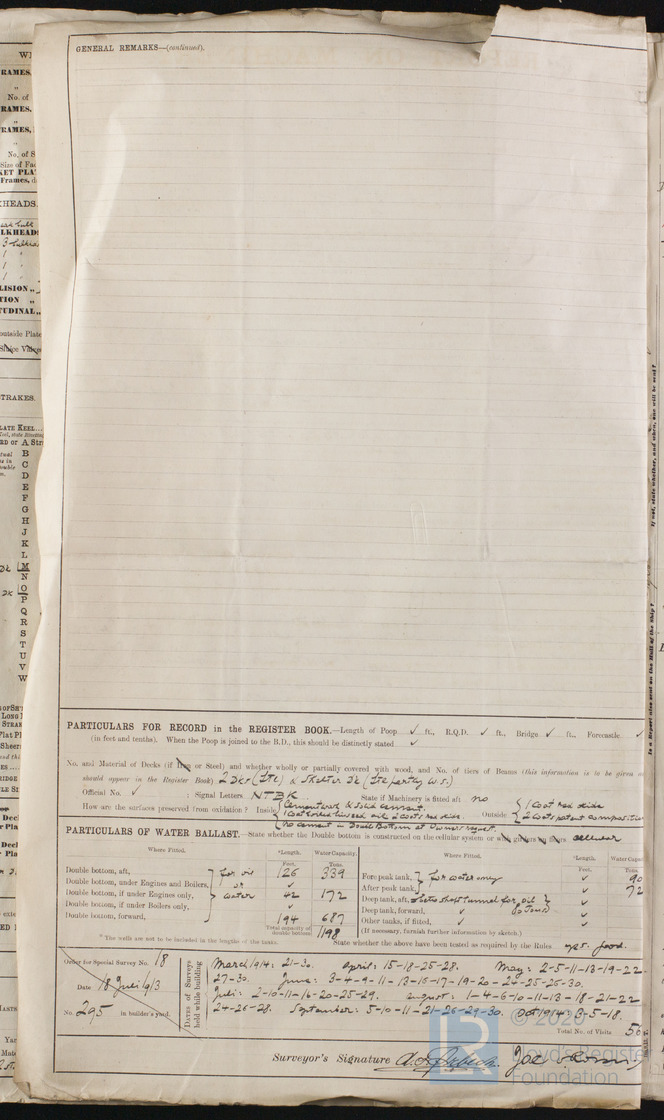 GENERAL REMARKS—(continued).
PARTICULARS FOR RECORD in the REGISTER BOOK.—Length of Poop ✓ ft., R.Q.D. ✓ ft., Bridge ✓ ft., Forecastle ✓
(in feet and tenths). When the Poop is joined to the B.D., this should be distinctly stated ✓
No. and Material of Decks (if Iron or Steel) and whether wholly or partially covered with wood, and No. of tiers of Beams (this information is to be given as
should appear in the Register Book) 2 Dks (Stl) & Shelter Dk (Stl partly W.S.)
Official No. ✓ : Signal Letters NTBK State if Machinery is fitted aft no
How are the surfaces preserved from oxidation? Inside Cement wash & solid cement. Outside 1 Coat red oxide
1 Coat boiled linseed oil 2 coats red oxide. 2 Coats patent composition
no cement in Double Bottom at Owners request.
PARTICULARS OF WATER BALLAST.—State whether the Double bottom is constructed on the cellular system or with girders on floors cellular
Where Fitted. *Length. Water Capacity. Where Fitted. *Length. Water Capac
Feet. Tons. Feet. Tons.
Double bottom, aft, for oil 126 339 Fore peak tank, for water only ✓ 90
Double bottom, under Engines and Boilers, or ✓ After peak tank, ✓ 72
Double bottom, if under Engines only, water 42 172 Deep tank, aft, shaft tunnel for oil ✓
Double bottom, if under Boilers only, ✓ Deep tank, forward, ✓
Double bottom, forward, 194 687 Other tanks, if fitted, ✓ ✓
Total capacity of double bottom 1198 (If necessary, furnish further information by sketch.)
*The wells are not to be included in the lengths of the tanks. State whether the above have been tested as required by the Rules yes. good.
Order for Special Survey No. 18
Date 18 Juli 1913
No. 295 in builder's yard.
DATES of Surveys held while building
March 1914: 21-30. April: 15-18-25-28. May: 2-5-11-13-19-22-
27-30. June: 3-4-9-11-13-16-17-19-20-24-25-26-30.
Juli: 2-10-11-16-20-25-29. August: 1-4-6-10-11-13-18-21-22
24-26-28. September: 5-10-11-21-26-29-30. Oct 1914: 3-5-18.
Total No. of Visits 56
Surveyor's Signature
© 2020
Lloyd's Register
Foundation
WI
RAMES,
No. of
RAMES,
RAMES,
No. of S
Size of Fac
KET PLA
Frames, d
HEADS.
LKHEADS
LISION „
TION „
TUDINAL „
outside Plate
STRAKES.
LATE KEEL...
A
B
C
D
E
F
G
H
J
K
L
M
N
O
P
Q
R
S
T
U
V
W